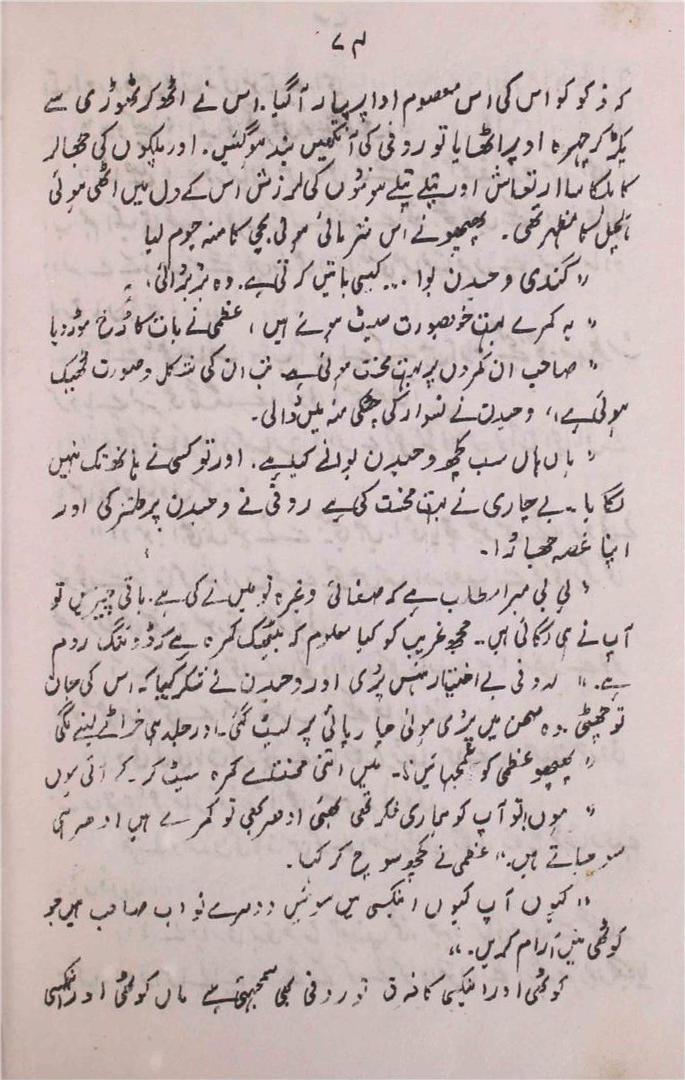 ۷۴
کہ ذکو کو اس کی اس معصوم ادا پر پیار آ گیا۔ اس نے اٹھ کر ٹھوڑی سے
پکڑ کر چہرہ اوپر اٹھایا تو روفی کی آنکھیں بند ہو گئیں۔ اور پلکوں کی جھالر
کا ہلکا سا ارتعاش اور پتلے پتلے ہونٹوں کی لرزش اس کے دل میں اٹھی ہوئی
ہلچل کا مظہر تھی۔ پھپھو نے اس شرمائی ہوئی بچی کا منہ چوم لیا
" گندی وحیدن بوا ... کیسی باتیں کرتی ہے۔ وہ بڑبڑائی،
" یہ کمرے بہت خوبصورت سیٹ ہوئے ہیں، عظمی نے بات کا رُخ موڑ دیا
" صاحب ان کمروں پر بہت محنت ہوئی ہے تب ان کی شکل وصورت ٹھیک
ہوئی ہے،، وحیدن نے نسوار کی چٹکی منہ میں ڈالی۔
" ہاں ہاں سب کچھ وحیدن بوا نے کیا ہے۔ اور تو کسی نے ہاتھ تک نہیں
لگایا۔ بے چاری نے بہت محنت کی ہے روفی نے وحیدن پر طنز کی اور
اپنا غصہ جھاڑا۔
" بی بی میرا مطلب ہے کہ صفائی وغیرہ تو میں نے کی ہے۔ باقی چیزیں تو
آپ نے ہی لگائی ہیں۔ مجھ غریب کو کیا معلوم کہ بیٹھک کمرہ ہے کہ ڈرائنگ روم
ہے۔" روفی بے اختیار ہنس پڑی اور وحیدن نے شکر کیا کہ اس کی جان
تو چھٹی۔ وہ صحن میں پڑی ہوئی چارپائی پر لیٹ گئی۔ اور جلد ہی خراٹے لینے لگی
" پھپھو عظمی کو سمجھائیں نا۔ میں اتنی محنت سے کمرہ سیٹ کر کر آئی ہوں
" ہوں تو آپ کو ہماری فکر تھی بھئی ادھر بھی تو کمرے ہیں ادھر ہی
سو جاتے ہیں۔" عظمی نے کچھ سوچ کر کہا۔
" کیوں آپ کیوں انیکسی میں سوئیں دوسرے نواب صاحب ہیں جو
کوٹھی میں آرام کریں۔"
کوٹھی اور انیکسی کا فرق تو روفی بھی سمجھتی ہے ماں کوٹھی اور انیکسی